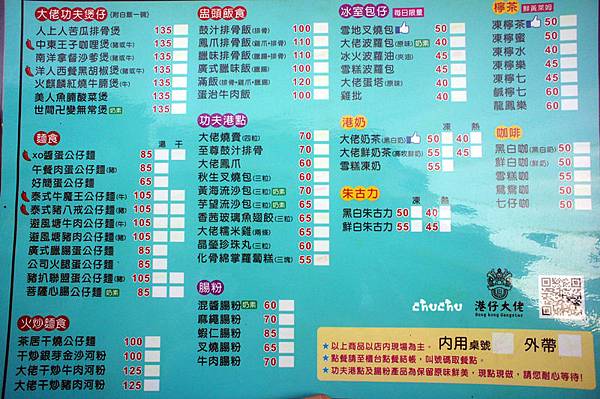 大佬功夫煲仔 (附白飯一碗)
人上人苦瓜排骨煲 135
中東王子咖哩煲(豬或牛) 135
南洋拿督沙爹煲(豬或牛) 135
洋人西餐黑胡椒煲(豬或牛) 135
火麒麟紅燒牛腩煲(牛) 135
美人魚腩酸菜煲 135
世間卍變無常煲 奶素 135
麵食 湯 干
xo醬蛋公仔麵 85
午餐肉蛋公仔麵(豬) 85
好蕳蛋公仔麵 65
泰式牛魔王公仔麵(牛) 105
泰式豬八戒公仔麵(豬) 105
避風塘牛肉公仔麵(牛) 105
避風塘豬肉公仔麵(豬) 105
廣式臘腸蛋公仔麵 85
公司火腿蛋公仔麵 85
豬扒聯盟蛋公仔麵(豬) 105
菩薩心腸公仔麵 奶素 85
火炒麵食
茶居干燒公仔麵 100
干炒銀芽金沙河粉 100
大佬干炒牛肉河粉 125
大佬干炒豬肉河粉 125
盅頭飯食
鼓汁排骨飯(排骨) 100
鳳爪排骨飯(鳳爪+排骨) 110
臘味排骨飯(臘腸+排骨) 110
廣式臘味飯(臘腸) 110
滿飯(排骨+鳳爪+臘腸) 120
蛋治牛肉飯 100
功夫港點
大佬燒賣(四粒) 70
至尊鼓汁排骨 70
大佬鳳爪 60
秋生叉燒包(三粒) 60
黃海流沙包(三粒) 奶素 65
芋望流沙包(三粒) 奶素 65
香茜玻璃魚翅餃(三粒) 65
大佬糯米雞(兩條) 65
晶瑩珍珠丸(三粒) 60
化骨綿掌蘿蔔糕(三塊) 55
腸粉
混醬腸粉 奶素 60
麻繩腸粉 70
蝦仁腸粉 85
叉燒腸粉 70
牛肉腸粉 70
冰室包仔 每日限量
雪地叉燒包 50
大佬波蘿包(原味) 奶素 40
冰火波蘿油(夾油) 45
雪糕波蘿包 60
大佬蛋塔(原味) 40
雞批 40
港奶 凍 熱
大佬奶茶(黑白奶) 50 40
大佬鮮奶茶(高牧鮮奶) 55 45
雪糕凍奶 60
朱古力 凍 熱
黑白朱古力 50 40
鮮白朱古力 55 45
檸茶 鮮黃萊姆
凍檸茶 50
凍檸蜜 50
凍檸水 40
凍檸樂 45
凍檸七 45
鹹檸七 60
龍鳳樂 60
咖啡
黑白咖(黑白奶) 50
鮮白咖(鮮奶) 50
雪糕咖 60
鴛鴦咖 50
七仔咖 50
chuchu
港仔大佬
Hong kong Gangster
★以上商品以店內現場為主。 內用桌號 外帶
★點餐請至櫃台點餐結帳，叫號碼取餐點。
★功夫港點及腸粉產品為保留原味鮮美，現點現做，請您耐心等待！